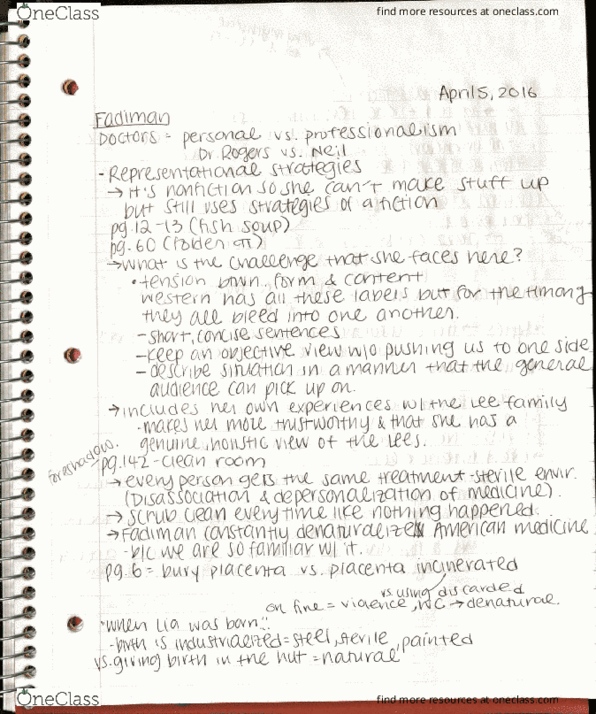 OneClass
find more resources at oneclass.com
April 5, 2016
Fadiman
Doctors = personal vs. professionalism
Dr Rogers vs. Neil
- Representational strategies
→ it's nonfiction so she can't make stuff up
but still uses strategies of a fiction
pg. 12-13 (fish soup)
pg. 60 (foden π)
→ what is the challenge that she faces here?
• tension btwn. form & content
western has all these labels but for the Hmong
they all bleed into one another.
- short, concise sentences
- keep an objective view w/o pushing us to one side
- describe situation in a manner that the general
audience can pick up on.
→ includes her own experiences w/ the Lee family
- makes her more trustworthy & that she has a
genuine, holistic view of the Lees.
foreshadow.
pg. 142 - clean room
→ every person gets the same treatment - sterile envir.
(Disassociation & depersonalization of medicine).
→ scrub clean every time like nothing happened
→ Fadiman constantly denaturalizes American medicine
- b/c we are so familiar w/ it.
pg 6 = bury placenta vs. placenta incinerated
vs. using discarded
on fire = violence, → denatural.
"when Lia was born"
- birth is industrialized = steel, sterile, painted
vs. giving birth in the hut = natural
OneClass
find more resources at oneclass.com